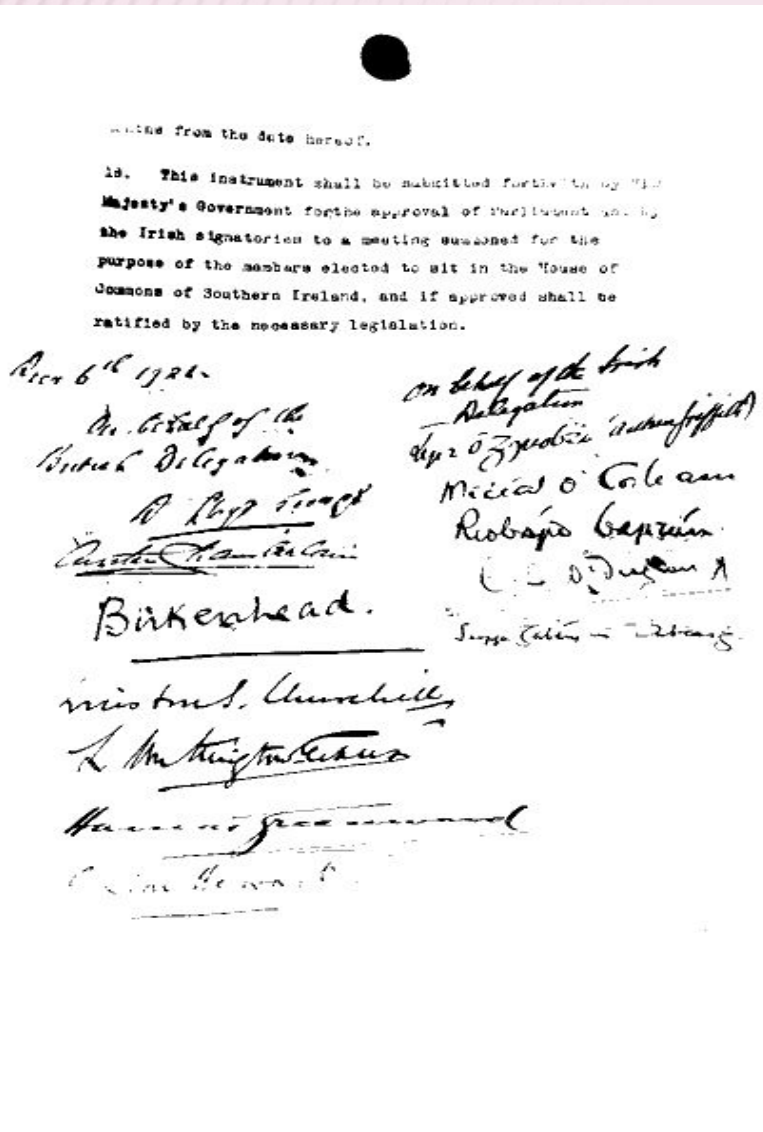 from the date hereof.
18. This instrument shall be submitted forthwith by His
Majesty's Government forthe approval of Parliament and by
the Irish signatories to a meeting summoned for the
purpose of the members elected to sit in the House of
Commons of Southern Ireland, and if approved shall be
ratified by the necessary legislation.
Decr 6th 1921.
On behalf of the
British Delegation
D Lloyd George
Austen Chamberlain
Birkenhead.
Winston S. Churchill
L Worthington Evans
Hamar Greenwood
Gordon Hewart
On behalf of the Irish
Delegation
(Arthur Griffith)
Micheál
Riobárd Bartún